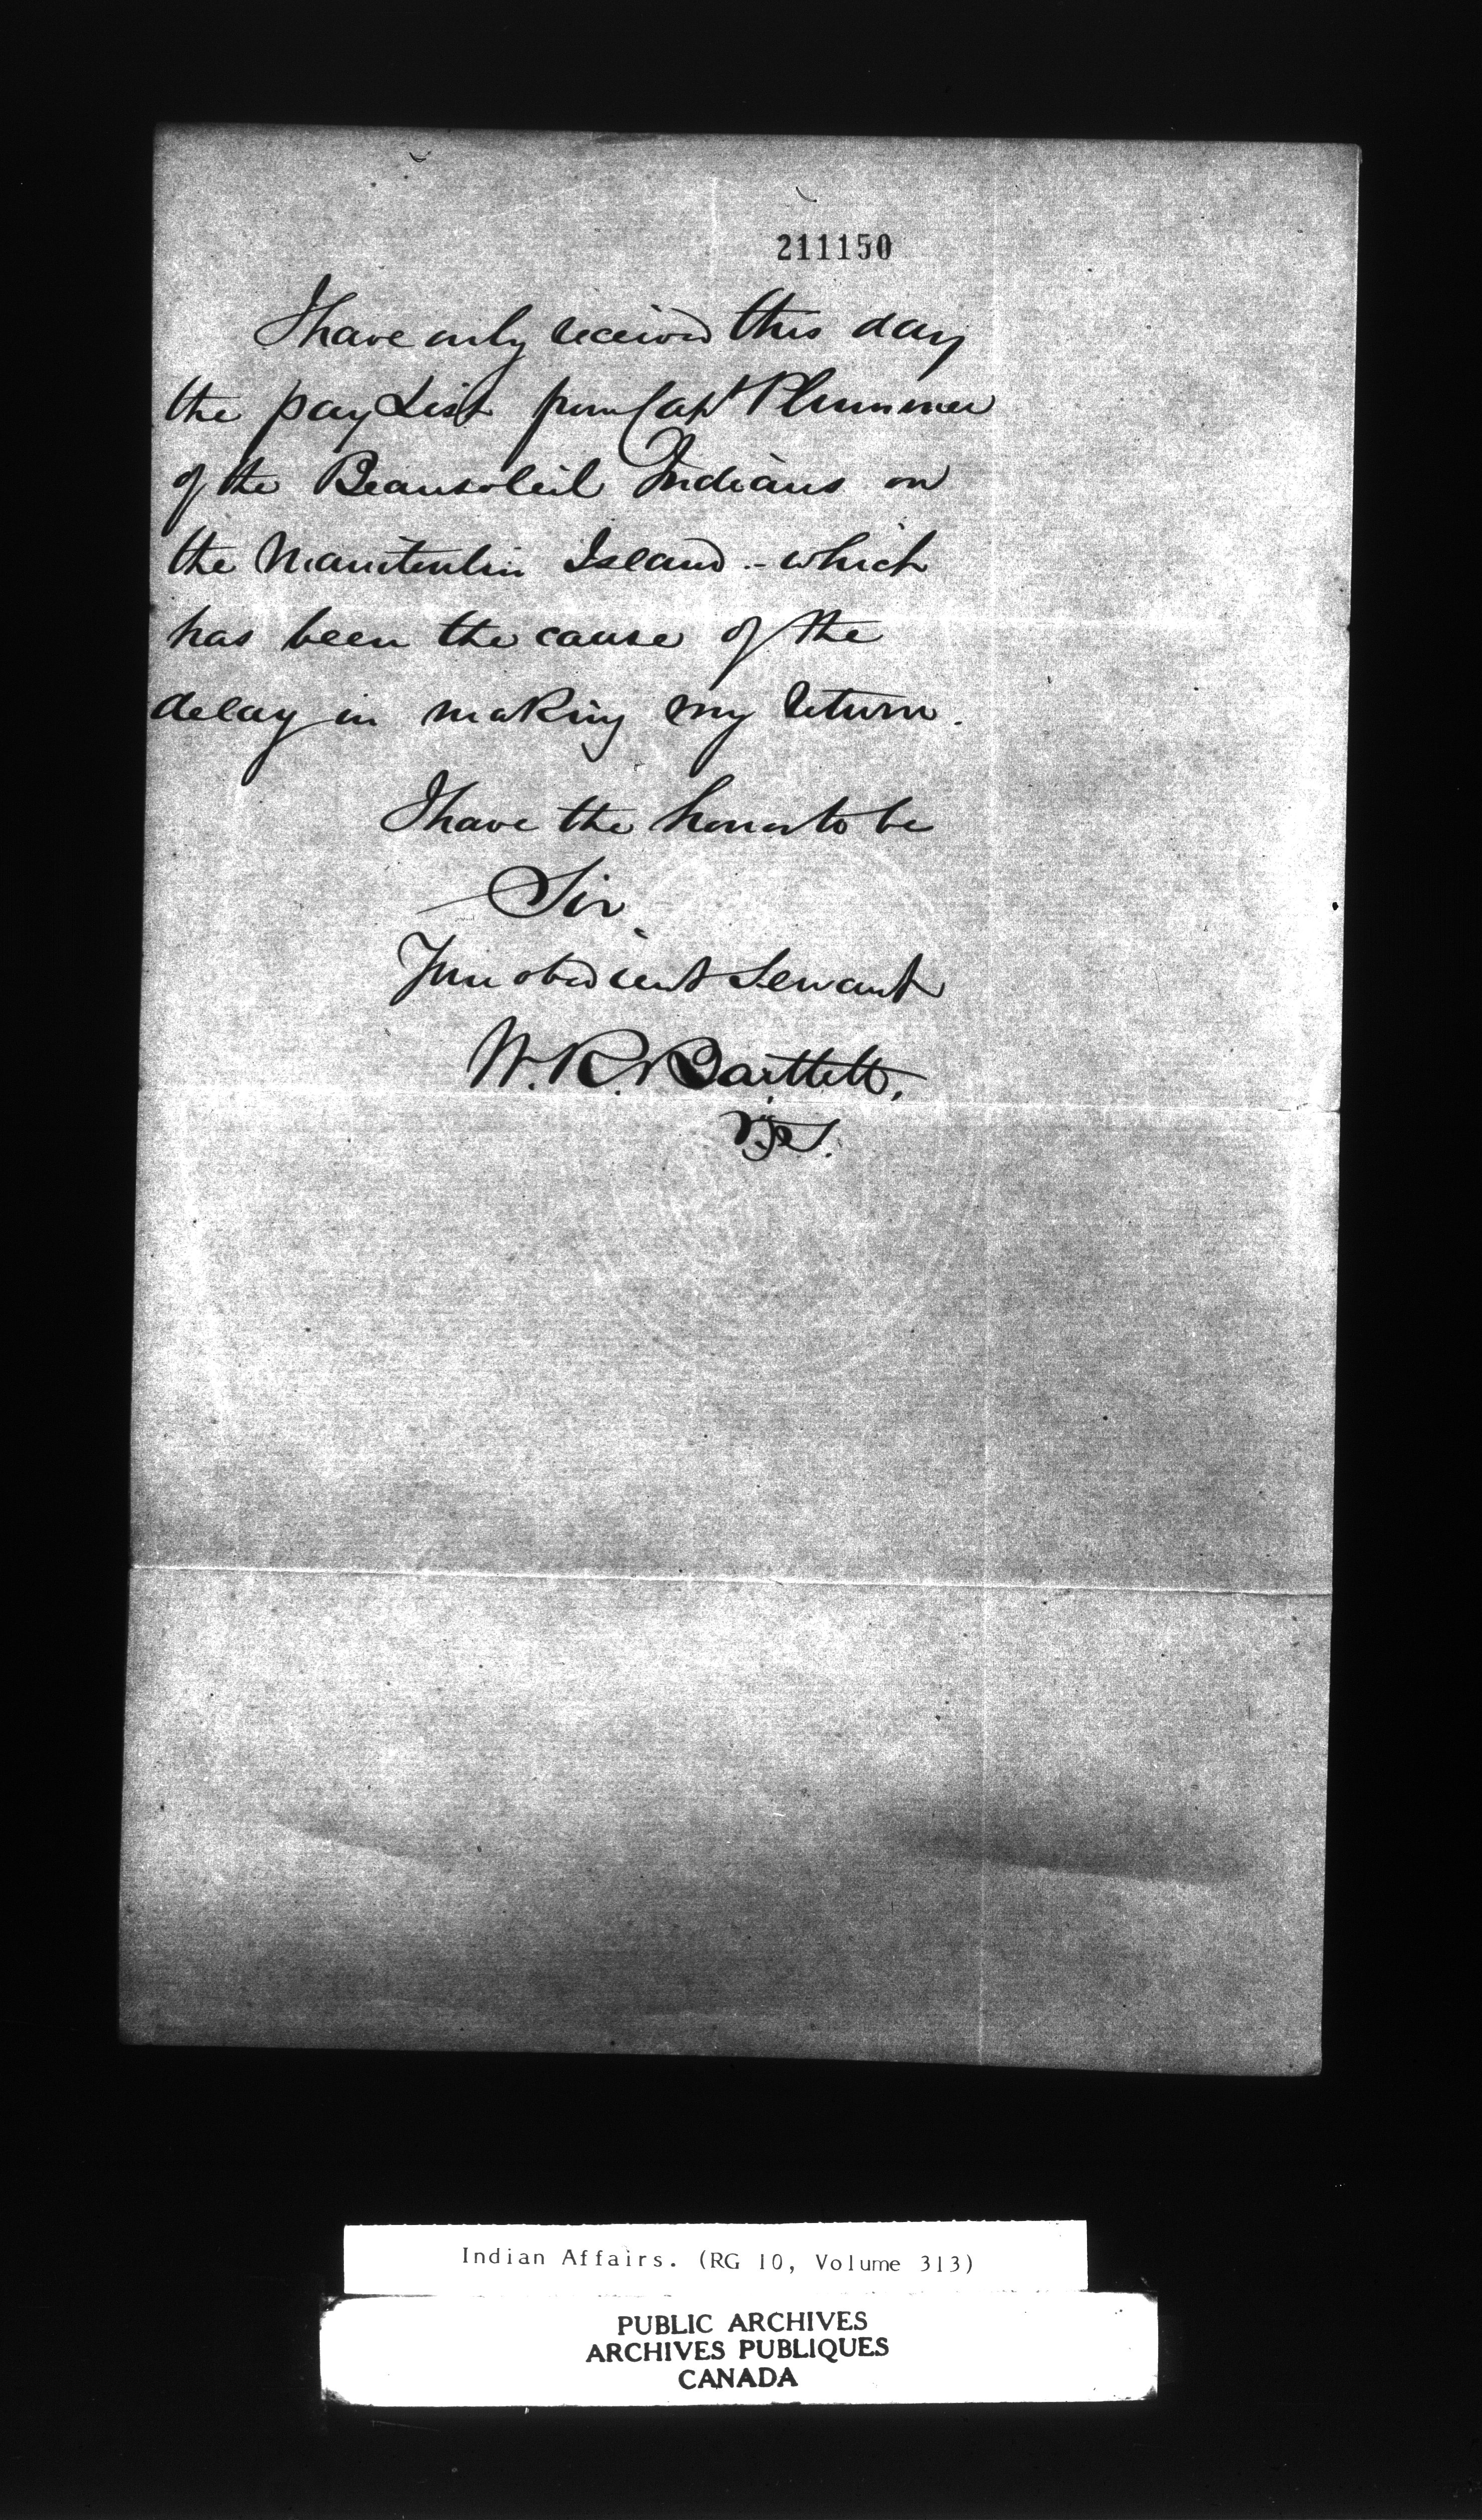 211150
I have only received this day
the pay List from Capt Plummer
of the Beausoleil Indians on
the Manitoulin Island - which
has been the cause of the
delay in making my return.
I have the honor to be
Sir
Your obedient Servant
W. R. Bartlett,
Indian Affairs. (RG 10, Volume 313)
PUBLIC ARCHIVES
ARCHIVES PUBLIQUES
CANADA